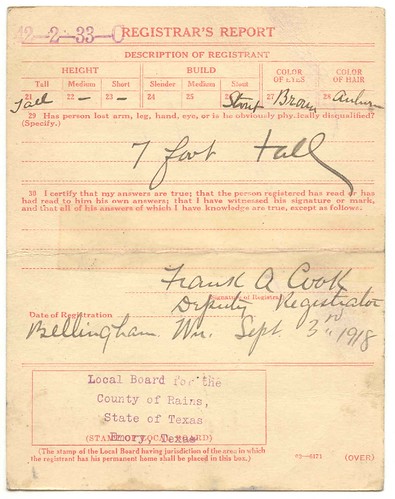 42-2-33-C REGISTRAR'S REPORT
DESCRIPTION OF REGISTRANT
HEIGHT BUILD COLOR OF EYES COLOR OF HAIR
Tall Medium Short Slender Medium Stout
21 Tall 22 - 23 - 24 25 26 Stout 27 Brown 28 Auburn
29 Has person lost arm, leg, hand, eye, or is he obviously physically disqualified?
(Specify.)
7 foot tall
30 I certify that my answers are true; that the person registered has read or has
had read to him his own answers; that I have witnessed his signature or mark,
and that all of his answers of which I have knowledge are true, except as follows.
Frank A Cook
(Signature of Registrar)
Deputy Registrator
Date of Registration
Bellingham Wn. Sept 3rd 1918
Local Board for the
County of Rains,
State of Texas
(STAMP OF LOCAL BOARD)
Emory, Texas
(The stamp of the Local Board having jurisdiction of the area in which
the registrant has his permanent home shall be placed in this box.)
03-6171 (OVER)